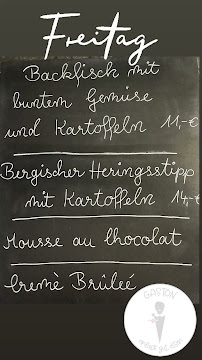 Freitag
Backfisch mit
buntem Gemüse
und Kartoffeln 11,-€
Bergischer Heringsstipp
mit Kartoffeln 14,-€
Mousse au Chocolat
Cremè Brûleé
GASTON